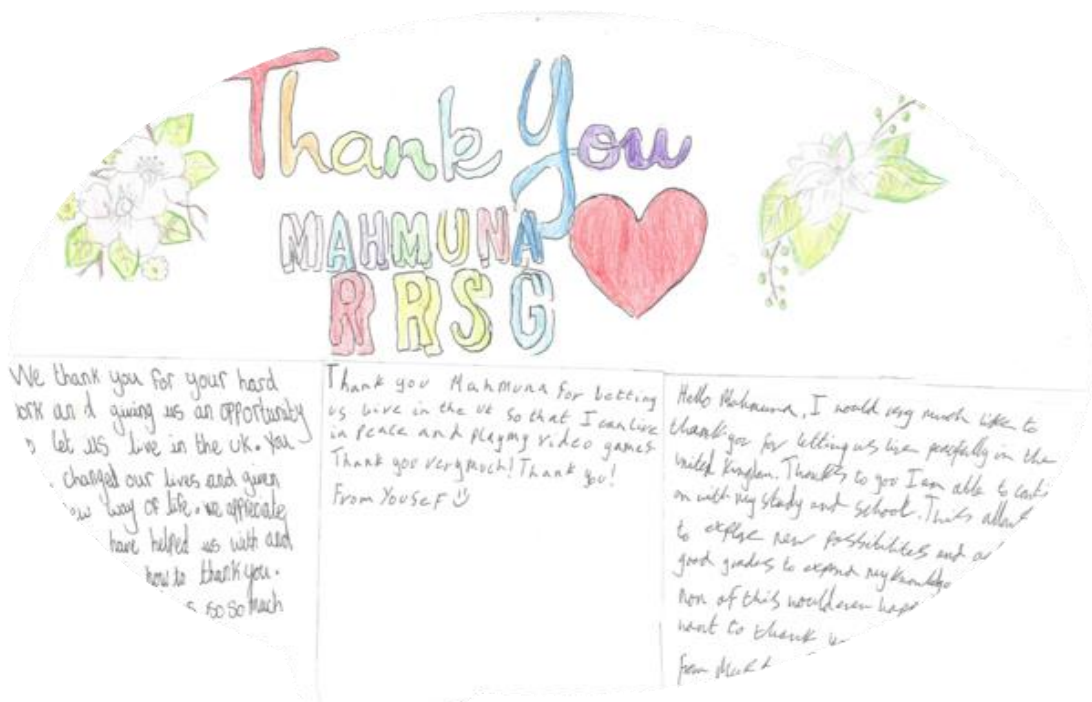 Thank You
MAHMUNA
RRSG
We thank you for your hard
and giving us an opportunity
let us live in the UK. You
changed our lives and given
way of life. we appreciate
have helped us with and
how to thank you.
so so much
Thank you Mahmuna for letting
us live in the UK so that I can live
in peace and playmy video games
Thank you very much! Thank you!
From Yousef
Hello Mahmuna, I would very much like to
thank you for letting us live peacfully in the
united Kingdom. Thanks to you I am able to
on with my study and school. This
to new possibilities and
good grades to expand my knowledge
non of this would even
want to thank
from